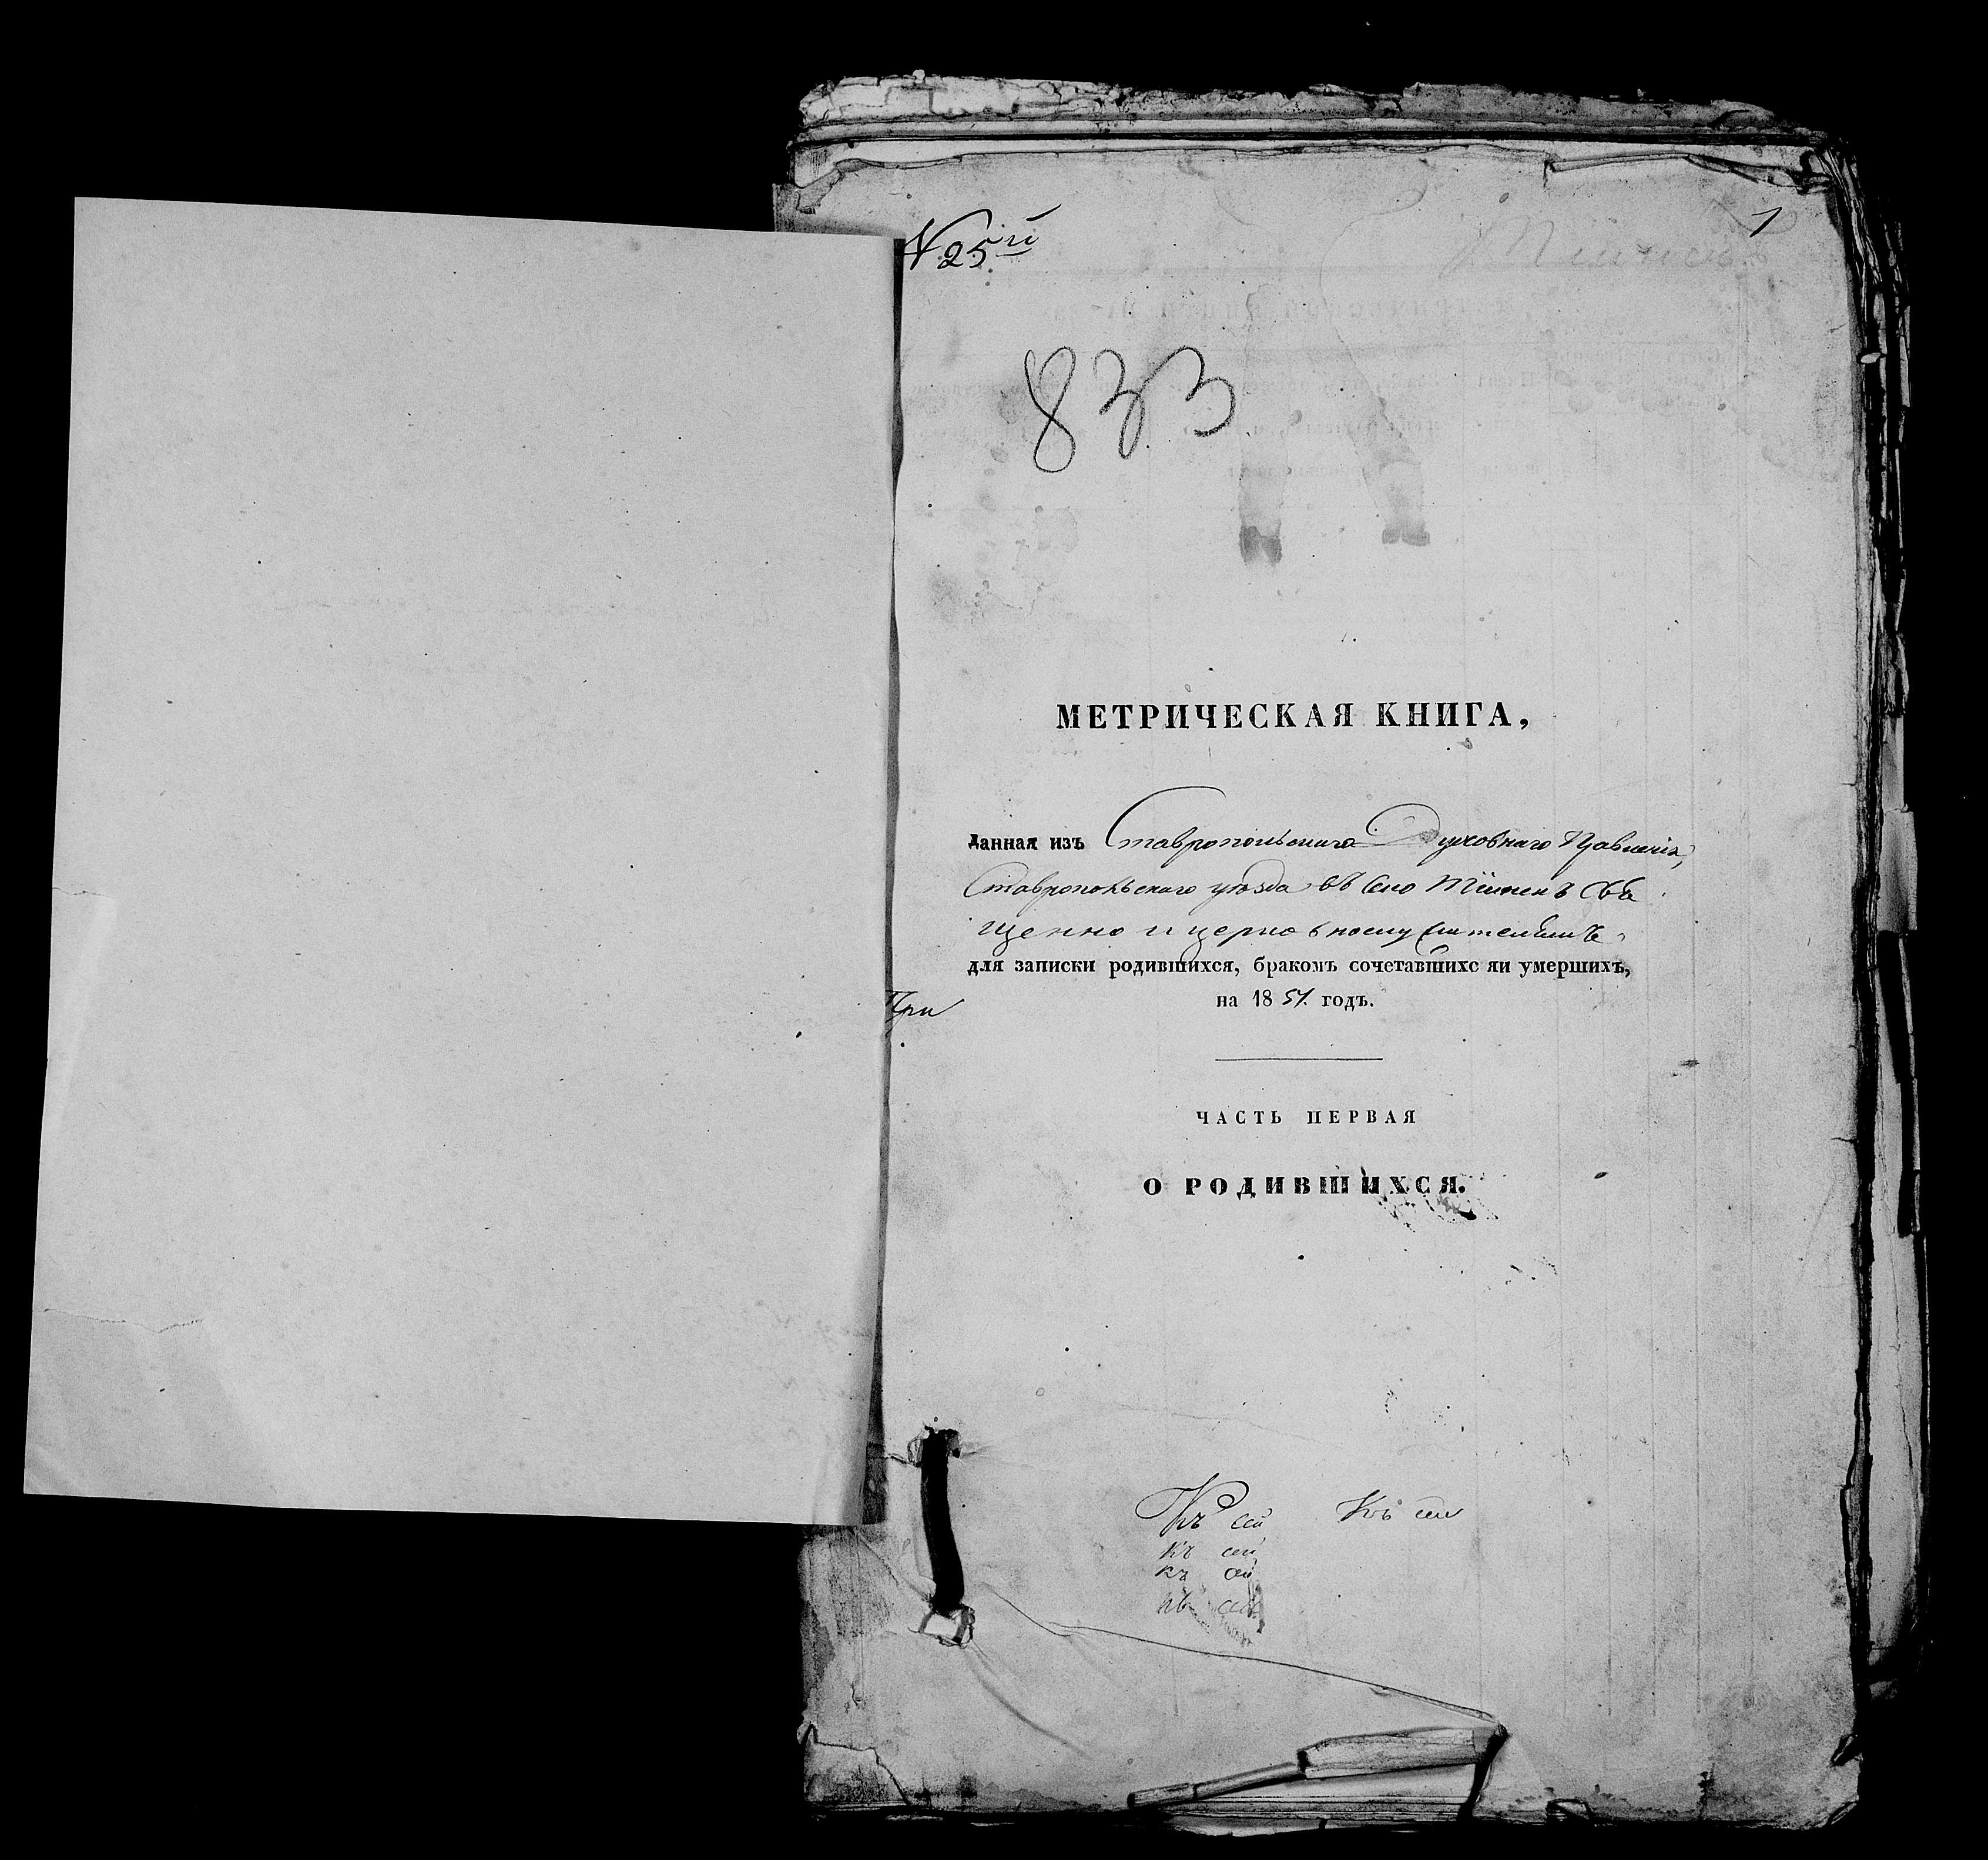 N 25й
1
833
МЕТРИЧЕСКАЯ КНИГА,
данная изъ Ставропольскаго Духовнаго Правленія,
Ставропольскаго уѣзда въ село Тіинскъ Свя
щенно и церковному служителямъ
для записки родившихся, бракомъ сочетавшихс яи умершихъ,
на 1851. годъ.
При
ЧАСТЬ ПЕРВАЯ
О РОДИВШИХСЯ.
Къ сей Къ сей
къ сей
къ сей
къ сей